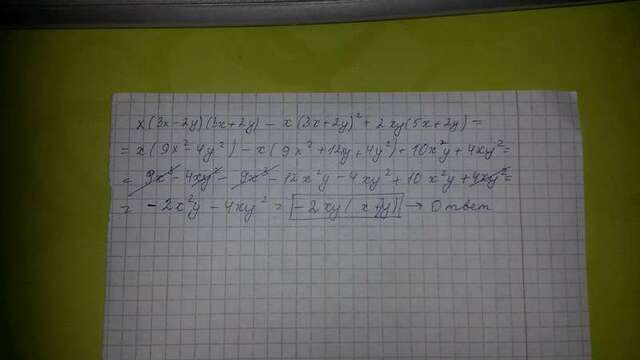 x(3x-2y)(3x+2y) - x(3x+2y)²+2xy(5x+2y)=
= x(9x²-4y²) - x(9x²+12xy+4y²)+10x²y+4xy²=
= 9x³-4xy²-9x³-12x²y-4xy²+10x²y+4xy²=
= -2x²y-4xy² = -2xy(x+y) → Ответ